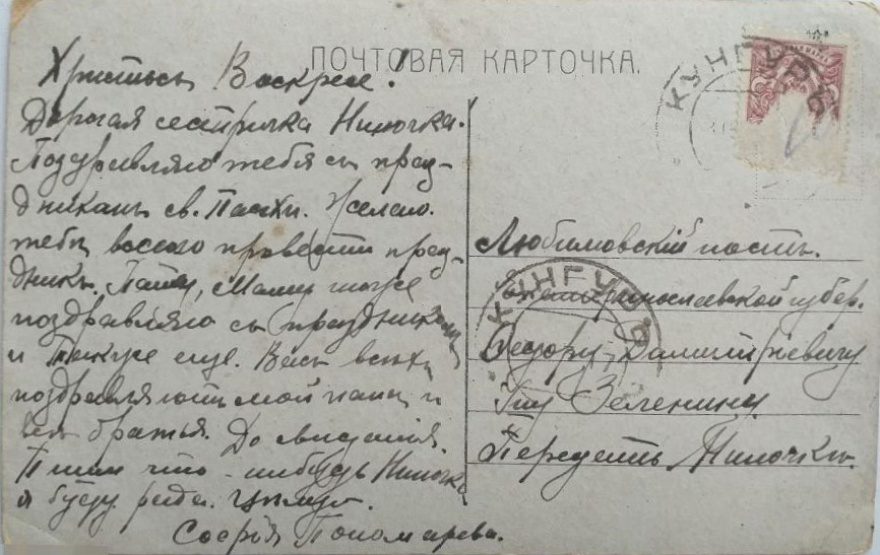 ПОЧТОВАЯ КАРТОЧКА.
Христосъ Воскресе!
Дорогая сестричка Ниночка.
Поздравляю тебя съ праз-
дникамъ св. Пасхи. Желаю
тебѣ весело провести праз-
дникъ. Папу, Маму тоже
поздравляю съ праздникомъ
и еще. Васъ всѣхъ
поздравляютъ мой папа и
всѣ братья. До свиданія.
Пиши что-нибудь Ниночка
я буду рада. Цѣлую
Софія Пономарева.
КУНГУРЪ
Любимовскій постъ.
Ярославской губер.
КУНГУРЪ
Ѳедору Дмитріевичу
Гну Зеленину.
Передать Ниночкѣ.